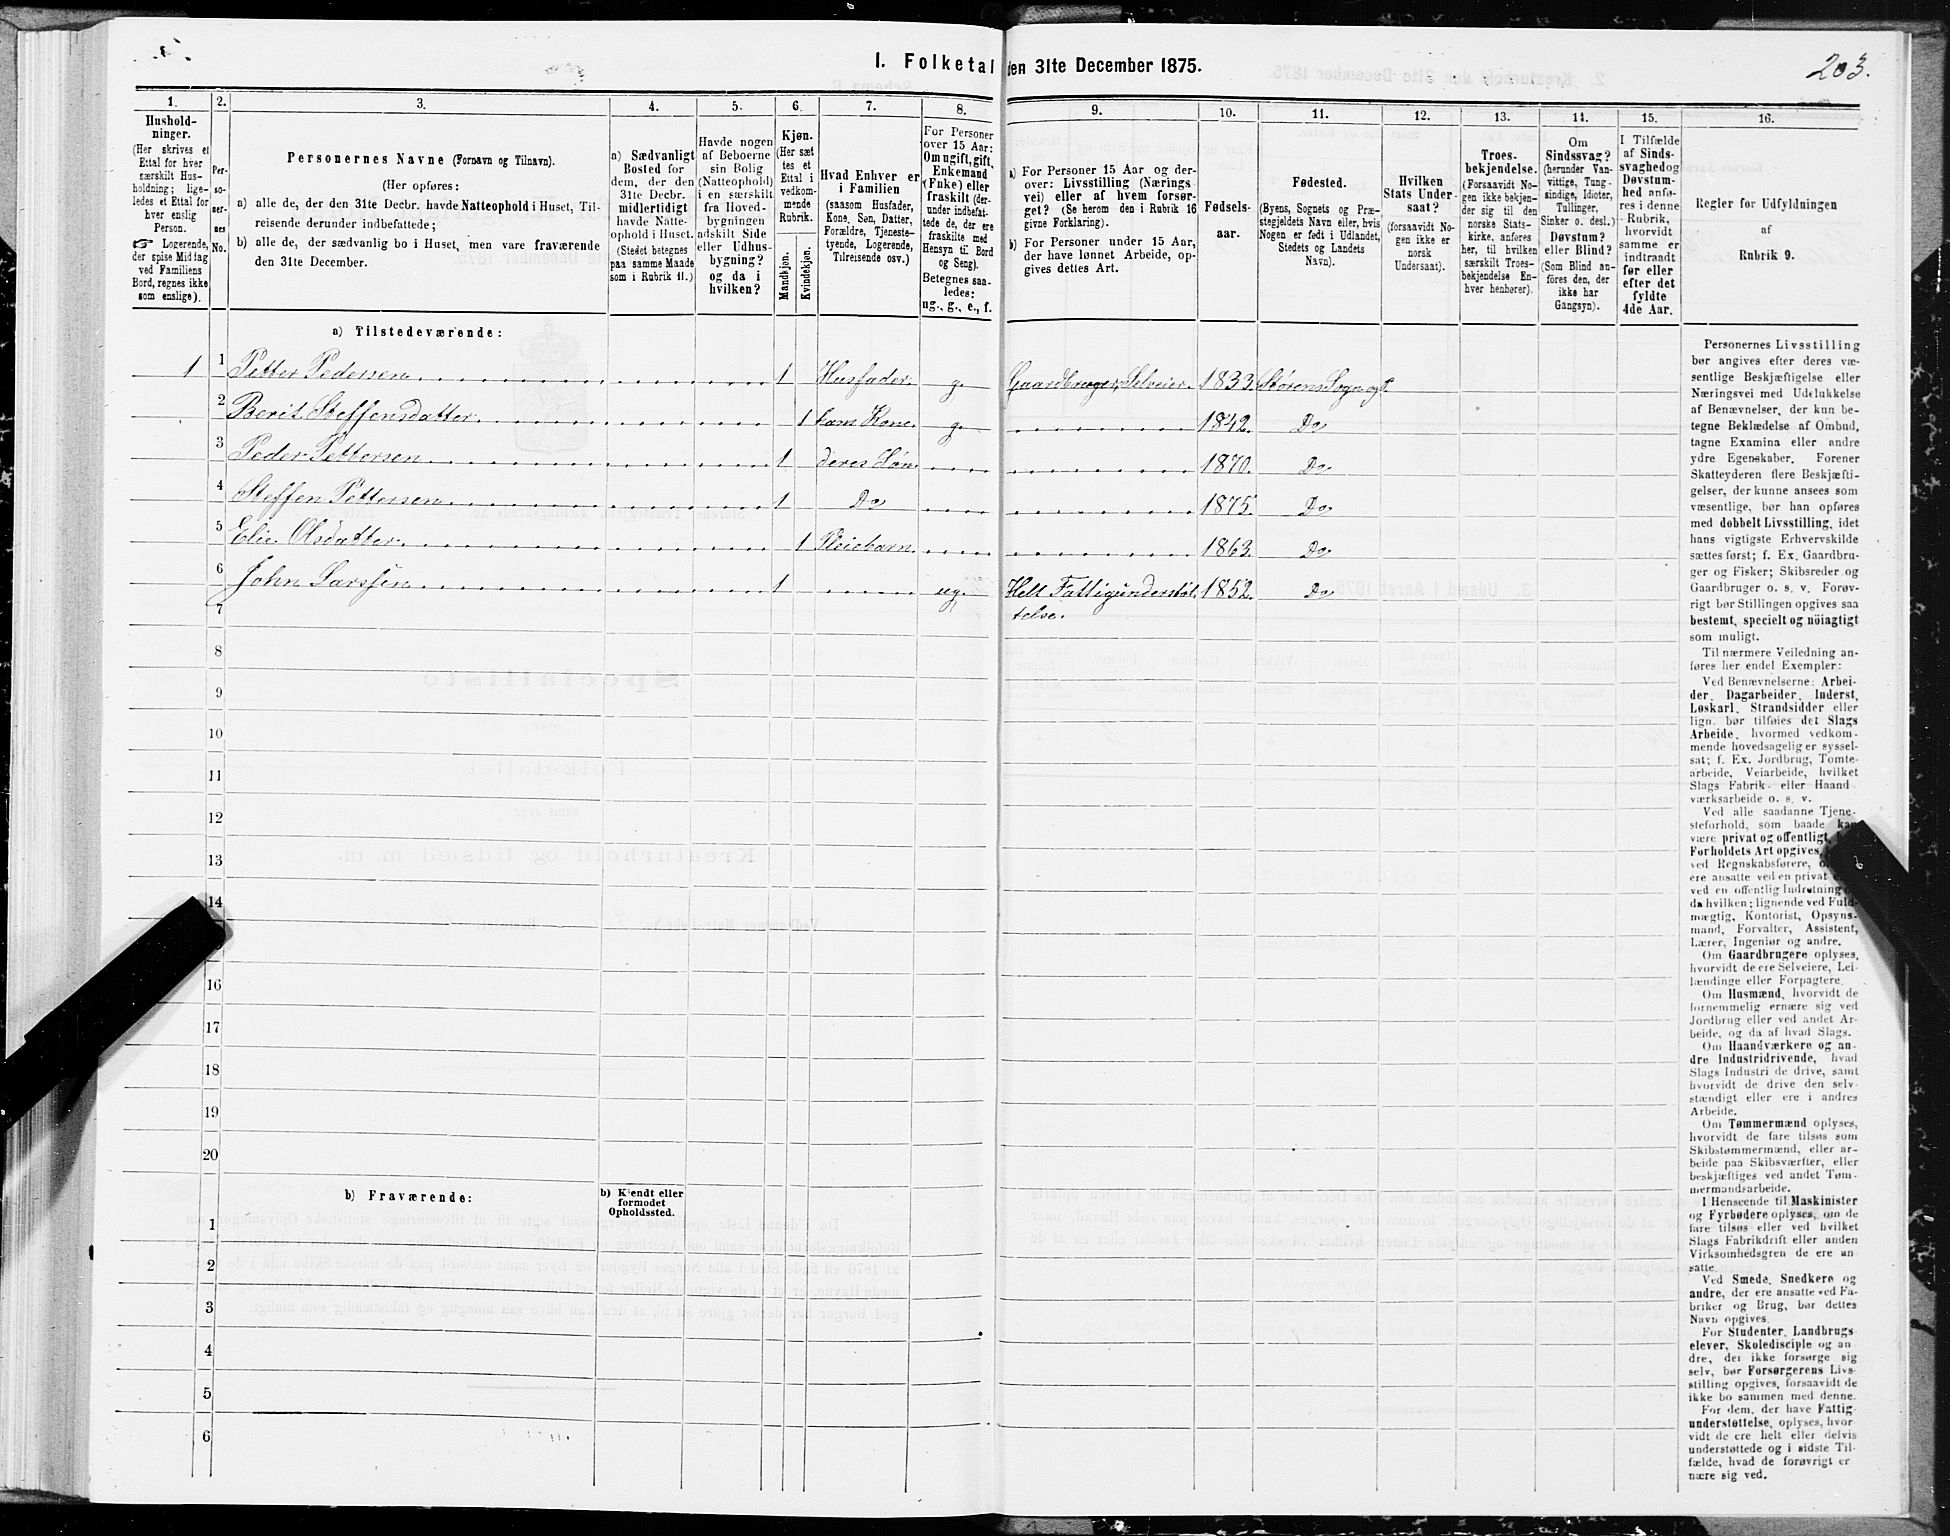 1. Folketal
den 31te December 1875.
203.
1. 2. 3. 4. 5. 6. 7. 8. 9. 10. 11. 12. 13. 14. 15. 16.
Hushold-
ninger.
(Her skrives et
Ettal for hver
særskilt Hus-
holdning; lige-
ledes et Ettal for
hver enslig
Person.
☞ Logerende,
der spise Middag
ved Familiens
Bord, regnes ikke
som enslige).
Per-
so-
ner-
nes
No.
Personernes Navne (Fornavn og Tilnavn).
(Her opføres:
a) alle de, der den 31te Decbr. havde Natteophold i Huset, Til-
reisende derunder indbefattede;
b) alle de, der sædvanlig bo i Huset, men vare fraværende
den 31te December.
a) Sædvanligt
Bosted for
dem, der den
31te Decbr.
midlertidigt
havde Natte-
ophold i Huset.
(Stedet betegnes
paa samme Maade
som i Rubrik 11.)
Havde nogen
af Beboerne
sin Bolig
(Natteophold)
i en særskilt
fra Hoved-
bygningen
adskilt Side
eller Udhus-
bygning?
og da i
hvilken?
Kjøn.
(Her sæt-
tes et
Ettal i
vedkom-
mende
Rubrik.
Mandkjøn.
Kvindekjøn.
Hvad Enhver er
i Familien
(saasom Husfader,
Kone, Søn, Datter,
Forældre, Tjeneste-
tyende, Logerende,
Tilreisende osv.)
For Personer
over 15 Aar:
Om ugift, gift,
Enkemand
(Enke) eller
fraskilt (der-
under indbefat-
tede de, der ere
fraskilte med
Hensyn til Bord
og Seng).
Betegnes saa-
ledes:
ug., g., e., f.
a) For Personer 15 Aar og der-
over: Livsstilling (Nærings-
vei) eller af hvem forsør-
get? (Se herom den i Rubrik 16
givne Forklaring).
b) For Personer under 15 Aar,
der have lønnet Arbeide, op-
gives dettes Art.
Fødsels-
aar.
Fødested.
(Byens, Sognets og Præ-
stegjeldets Navn eller, hvis
Nogen er født i Udlandet,
Stedets og Landets
Navn).
Hvilken
Stats Under-
saat?
(forsaavidt No-
gen ikke er
norsk
Undersaat).
Troes-
bekjendelse.
(Forsaavidt No-
gen ikke bekjen-
der sig til den
norske Stats-
kirke, anføres
her, til hvilken
særskilt Troes-
bekjendelse En-
hver henhører).
Om
Sindssvag?
(herunder Van-
vittige, Tung-
sindige, Idioter,
Tullinger,
Sinker o. desl.)
Døvstum?
eller Blind?
(Som Blind an-
føres den, der
ikke har
Gangsyn).
I Tilfælde
af Sinds-
svaghed og
Døvstum-
hed anfø-
res i denne
Rubrik,
hvorvidt
samme er
indtraadt
før eller
efter det
fyldte
4de Aar.
Regler for Udfyldningen
af
Rubrik 9.
a) Tilstedeværende:
1 1 Petter Pedersen 1 Husfader g. Gaardbruger, Selveier. 1833. Størens Sogn og P.
2 Berit Steffensdatter 1 hans Kone g. 1842. Do
3 Peder Pettersen 1 deres Søn 1870. Do
4 Steffen Pettersen 1 Do 1875. Do
5 Elie Olsdatter 1 Pleiebarn 1863. Do
6 John Larssen 1 ug. Helt Fattigunderstøt- 1852. Do
7 telse.
8
9
10
11
12
13
14
16
17
18
19
20
b) Fraværende:
b) Kjendt eller
formodet
Opholdssted.
1
2
3
4
5
6
Personernes Livsstilling
bør angives efter deres væ-
sentlige Beskjæftigelse eller
Næringsvei med Udelukkelse
af Benævnelser, der kun be-
tegne Beklædelse af Ombud,
tagne Examina eller andre
ydre Egenskaber. Forener
Skatteyderen flere Beskjæfti-
gelser, der kunne ansees som
væsentlige, bør han opføres
med dobbelt Livsstilling, idet
hans vigtigste Erhvervskilde
sættes først; f. Ex. Gaardbru-
ger og Fisker; Skibsreder og
Gaardbruger o. s. v. Forøv-
rigt bør Stillingen opgives saa
bestemt, specielt og nöiagtigt
som muligt.
Til nærmere Veiledning an-
føres her endel Exempler:
Ved Benævnelserne: Arbei-
der, Dagarbeider, Inderst,
Løskarl, Strandsidder eller
lign. bør tilføies det Slags
Arbeide, hvormed vedkom-
mende hovedsagelig er syssel-
sat; f. Ex. Jordbrug, Tomte-
arbeide, Veiarbeide, hvilket
Slags Fabrik- eller Haand-
værksarbeide o. s. v.
Ved alle saadanne Tjene-
steforhold, som baade kan
være privat og offentligt,
Forholdets Art opgives,
ved Regnskabsførere,
ere ansatte ved en privat
ved en offentlig Indretning
da hvilken; lignende ved Fuld-
mægtig, Kontorist, Opsyns-
mand, Forvalter, Assistent,
Lærer, Ingeniør og andre.
Om Gaardbrugere oplyses,
hvorvidt de ere Selveiere, Lei-
lændinge eller Forpagtere.
Om Husmænd, hvorvidt de
fornemmelig ernære sig ved
Jordbrug eller ved andet Ar-
beide, og da af hvad Slags.
Om Haandværkere og an-
dre Industridrivende, hvad
Slags Industri de drive, samt
hvorvidt de drive den selv-
stændigt eller ere i andres
Arbeide.
Om Tømmermænd oplyses,
hvorvidt de fare tilsøs som
Skibstømmermænd, eller ar-
beide paa Skibsværfter, eller
beskjæftiges ved andet Tøm-
mermandsarbeide.
I Henseende til Maskinister
og Fyrbødere oplyses, om de
fare tilsøs eller ved hvilket
Slags Fabrikdrift eller anden
Virksomhedsgren de ere an-
satte.
Ved Smede, Snedkere og
andre, der ere ansatte ved Fa-
briker og Brug, bør dettes
Navn opgives.
For Studenter, Landbrugs-
elever, Skoledisciple og an-
dre, der ikke forsørge sig
selv, bør Forsørgerens Livs-
stilling opgives, forsaavidt de
ikke bo sammen med denne.
For dem, der have Fattig-
understøttelse, oplyses, hvor-
vidt de ere helt eller delvis
understøttede og i sidste Til-
fælde, hvad de forøvrigt er-
nære sig ved.